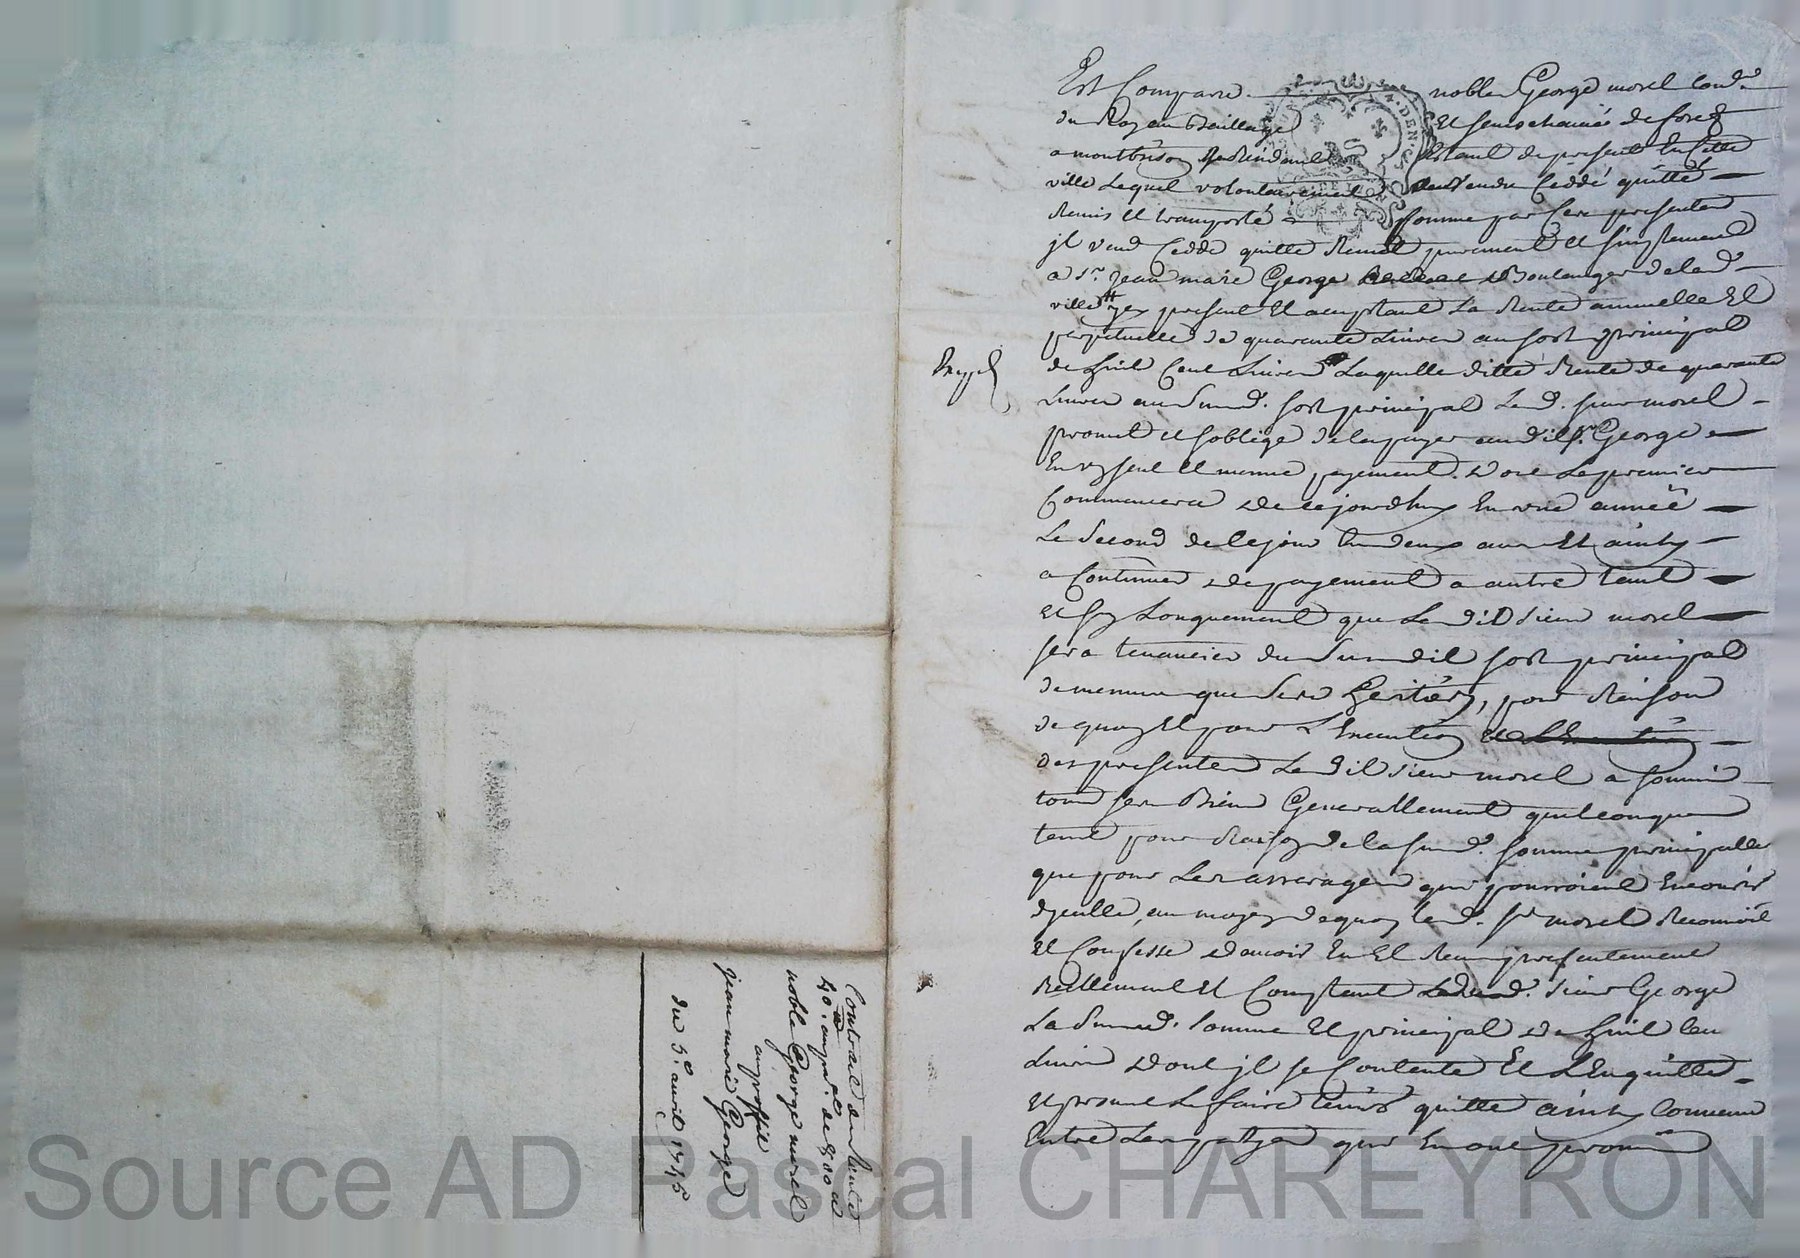 Est Comparu noble George morel cons.er
du Roy au Bailliage Et seneschaucée de forez
a montbrison Residant Estant de present En cette
ville Lequel volontairement a vendu Ceddé quitté
Remis et transporté Comme par Ces presentes
jl vend Cedde quitte Remet purement et simplement
a sr. Jean marie George Boulanger de lad.
ville jcy present Et aceptant La Rente annuelle Et
perpetuelle de quarante Livres au sort principal
de huit Cent Livres Laquelle ditte Rente de quarante
Livres au susd. sort principal Led. sieur morel
promet et soblige de la payer audit sr. George
En un seul et mesme payement. dont Le premier
Commencera de cejourdhuy En une année
Le second de Ce jour En deux ans Et ainsy
a Continuer de payement a autre tant
et sy Longuement que Ledit sieur morel
sera tenancier du susdit sort principal
de mesme que ses heritiers, pour Raison
de quoy Et pour L'Execution
des presentes Ledit sieur morel a soumis
tous ses Biens Generallement quelconques
tant pour Raison de la susd. somme principalle
que pour Les arrerages qui pourroient Encourir
dycelle, au moyen de quoy led. sr morel Reconnoit
Et Confesse davoir Eu Et Reçu presentement
Reellement Et Comptant dud. sieur George
La susd. somme Et principal de huit Cent
Livres dont jl se Contente Et L'En quitte
et promet Le faire tenir quitte ainsy Convenu
Entre Les parties qui En ont promis
Contrat de Rente
40.# au pn.al de 800 #
noble George morel
au proffit
jean marie George
du 5.e avril 1745
Source AD Pascal CHAREYRON